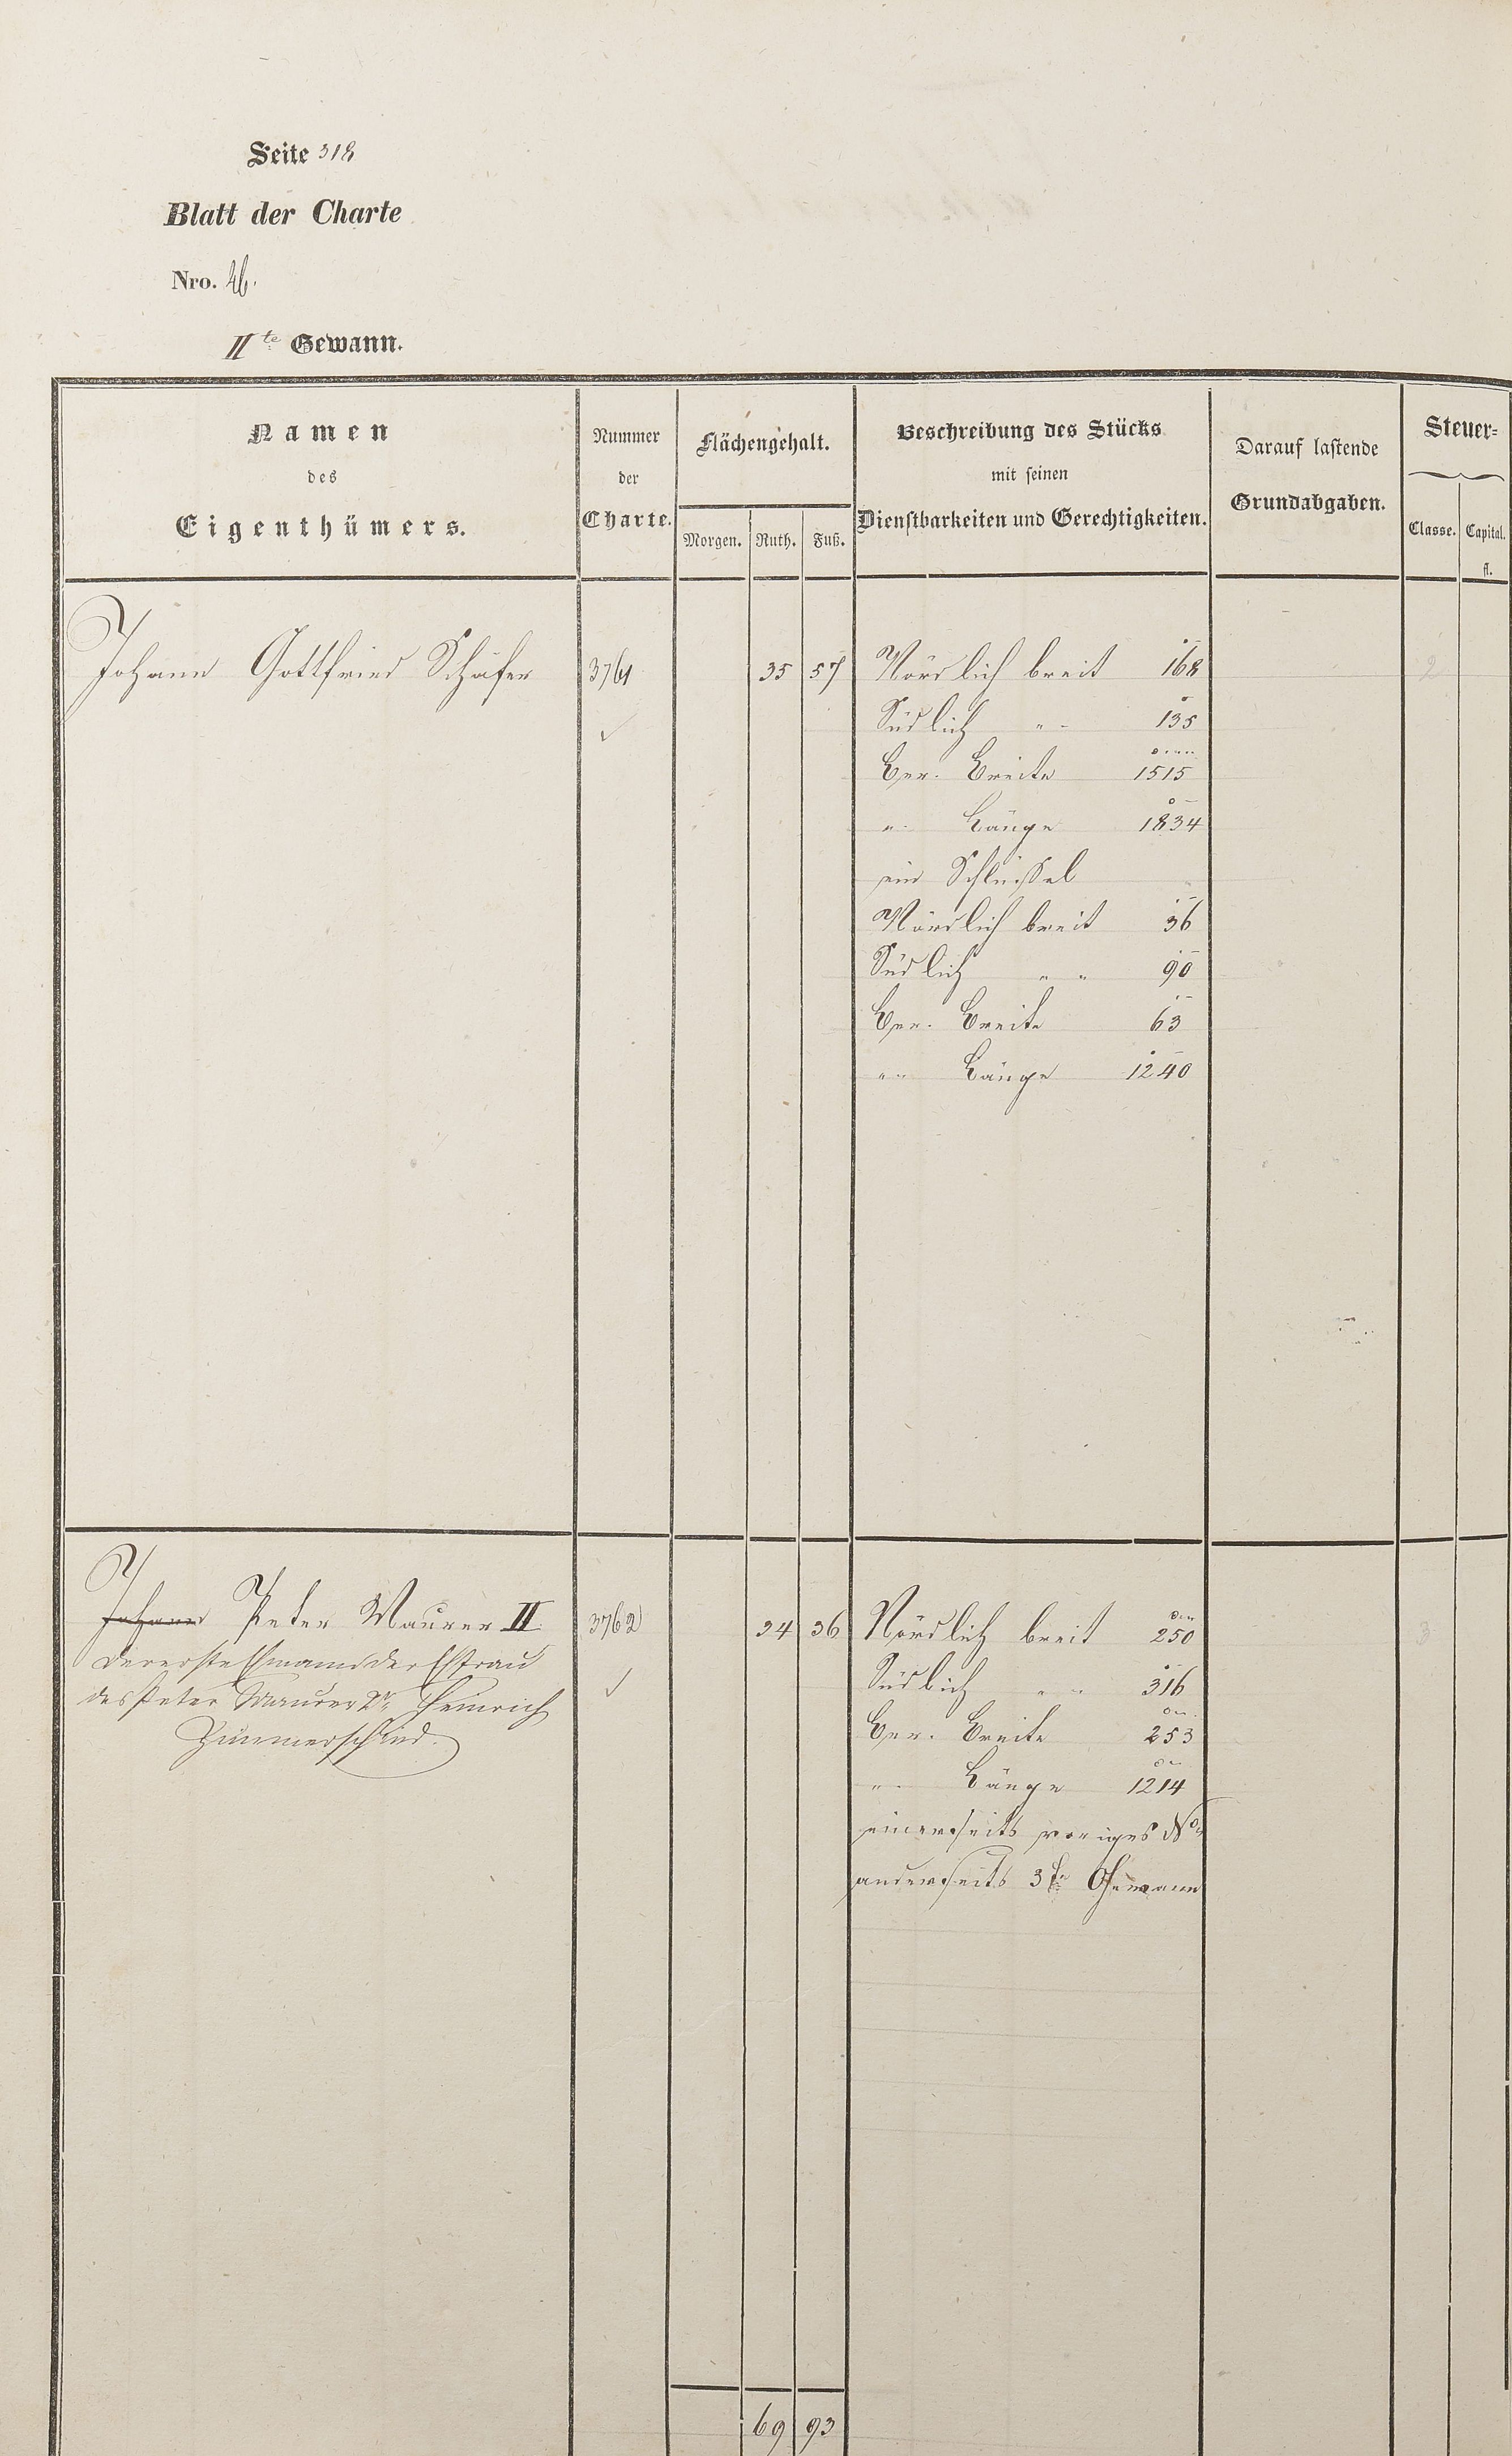 Seite 318
Blatt der Charte
Nro. 26.
II te Gewann.
Namen
des
Eigenthümers.
Nummer
der
Charte.
Flächengehalt.
Morgen. Ruth. Fuß.
Beschreibung des Stücks
mit seinen
Dienstbarkeiten und Gerechtigkeiten.
Darauf lastende
Grundabgaben.
Steuer-
Classe. Capital.
fl.
Johann Gottfried Schäfer 3761 35 57 Nördlich breit 168 2
Südlich " - 135
Ger. Breite 1515
" Länge 1834
ein Schlüssel
Nördlich breit 36
Südlich " " 90
Ger. Breite 63
" Länge 1240
Johann Peter Maurer II 3762 34 36 Nördlich breit 250 3
der erste Ehmann der Ehfrau
Südlich " " 316
des Peter Maurer 2r Heinrich
Ger. Breite 253
Zimmerschied.
" Länge 1214
einerseits voriges No
anderseits 3te Gewann
69 93